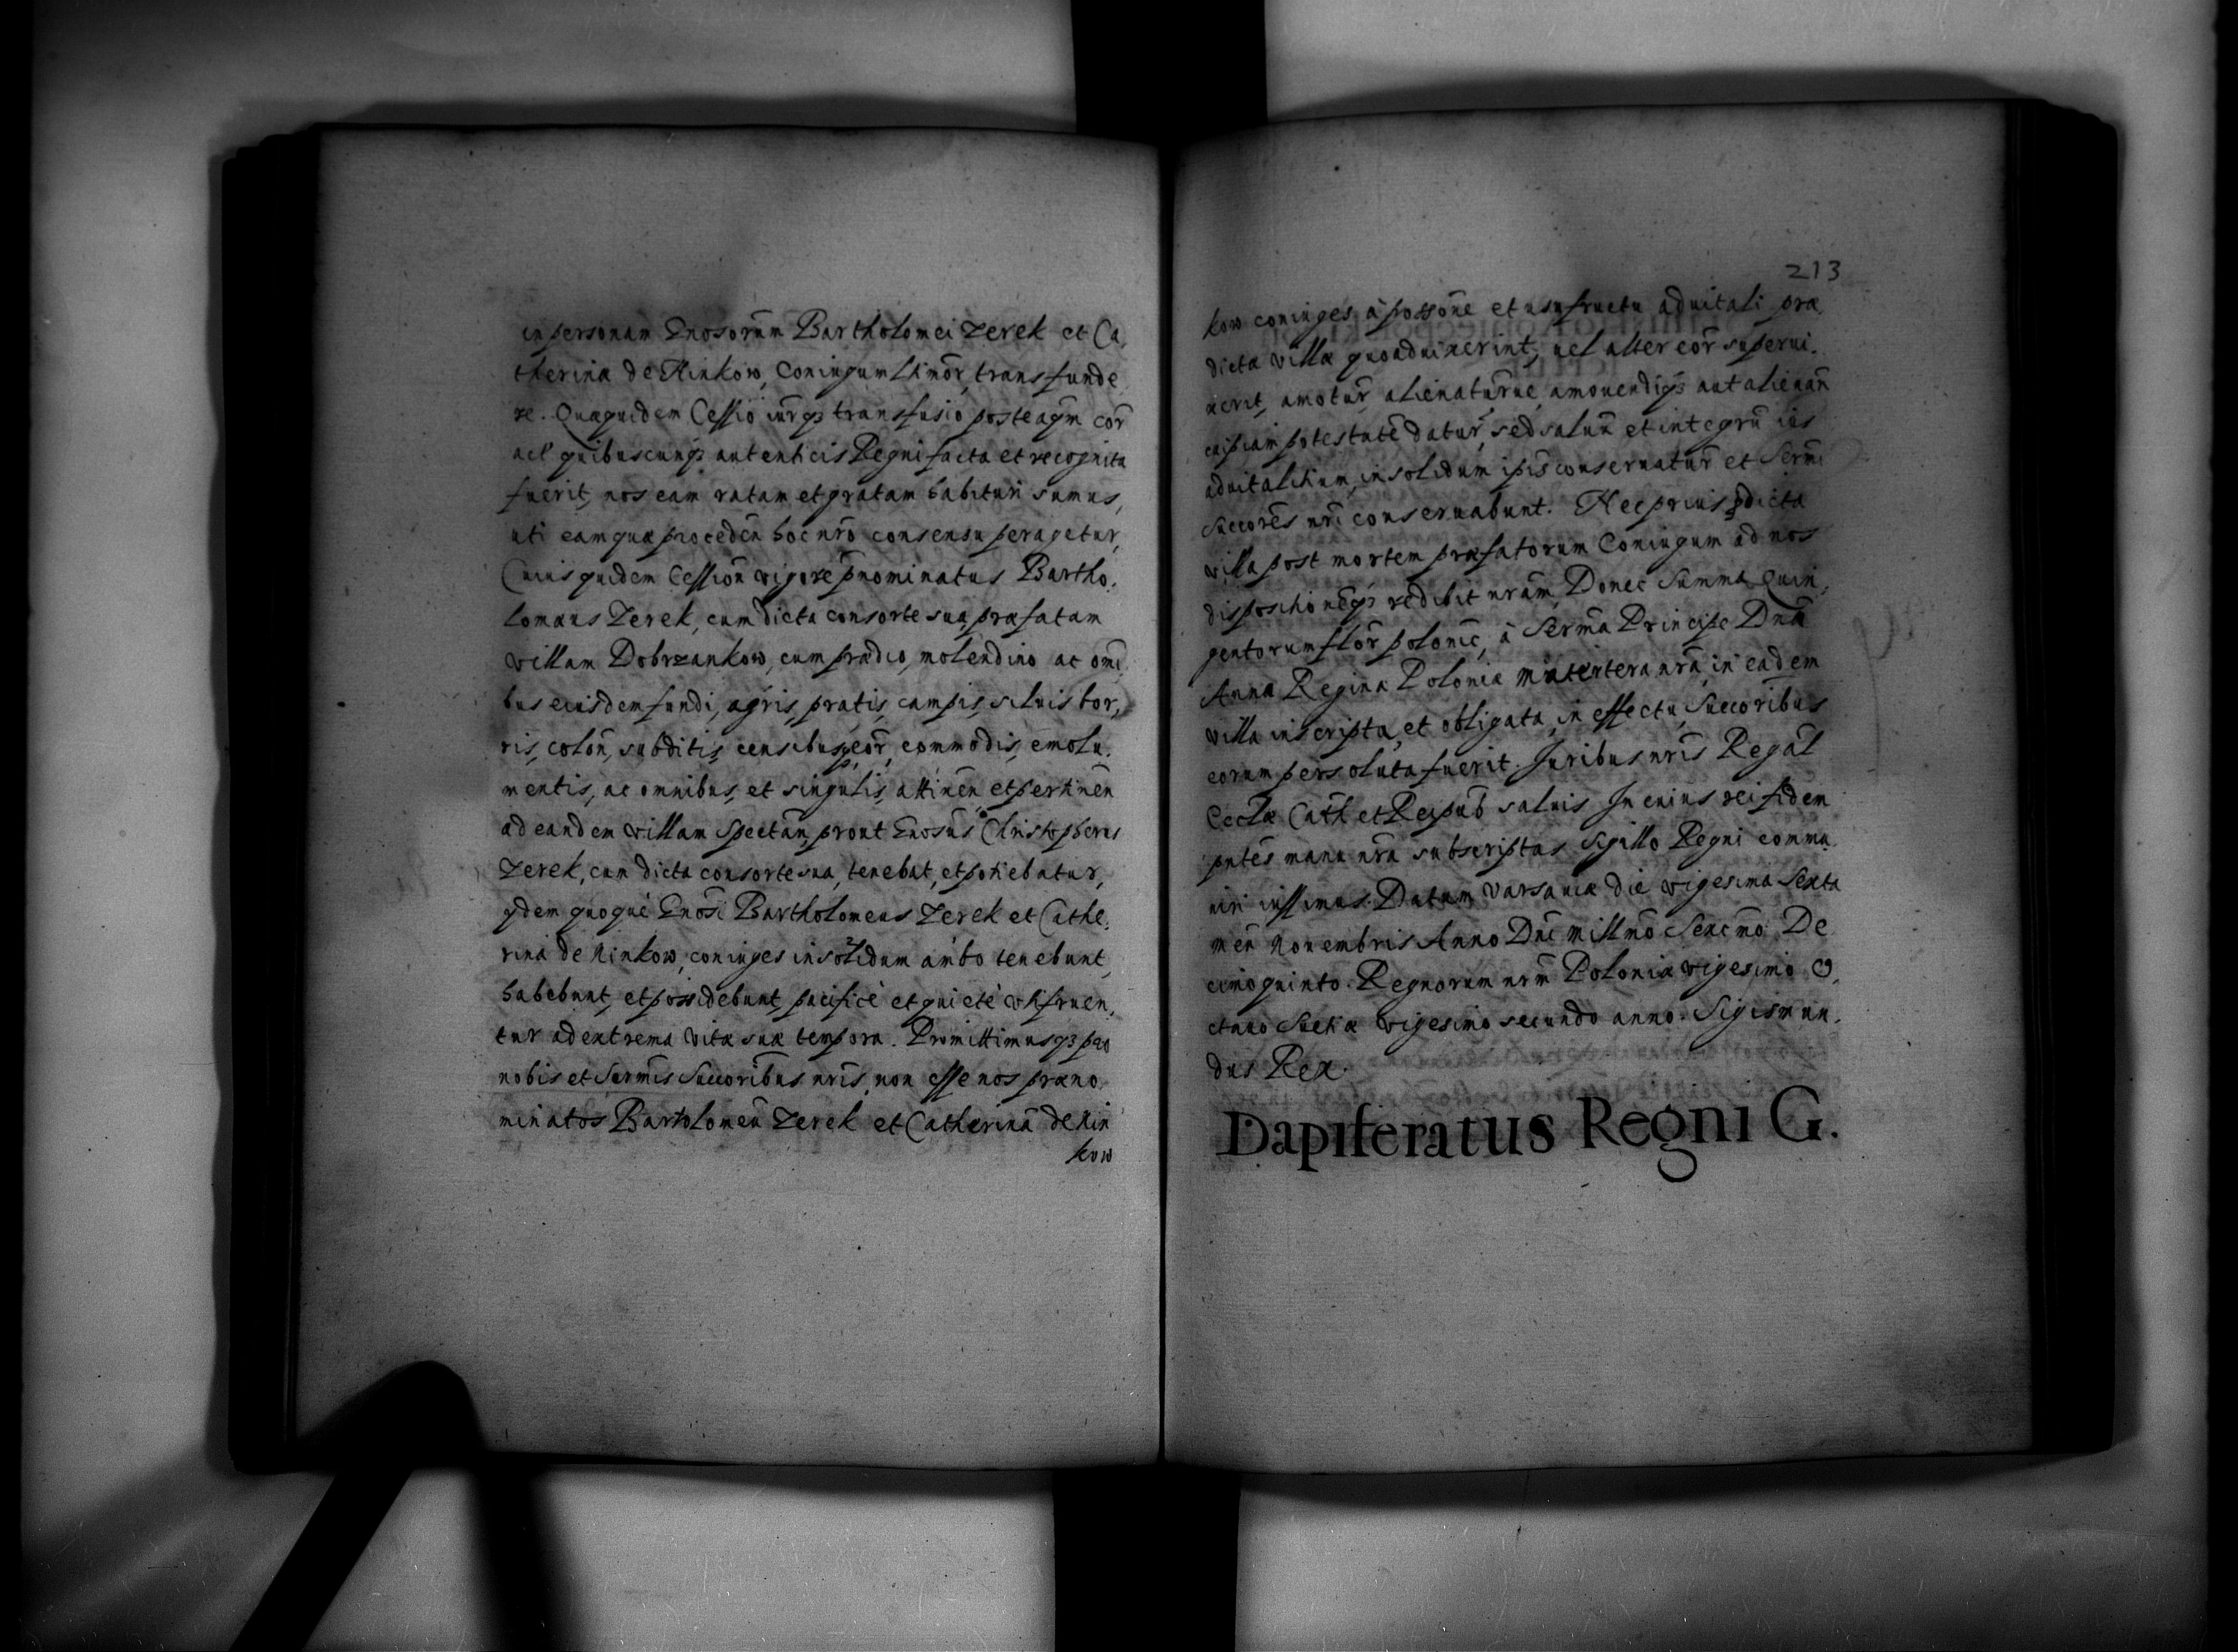 in personam Gnosorum Bartholomei Zerek et Ca,
therina de Ninkow, Coniugum ltimor, transfunde
re. Quaquidem Cessio iurqꝫ transfusio posteaqm cor
ael quibuscunqꝫ autenticis Regni facta et recognita
fuerit, nos eam ratam et gratam habituri sumus,
uti eamquæ proceden hoc nro consensu peragetur,
Cuius quidem Cession vigore pnominatus Bartho,
lomæus Zerek, cum dicta consorte sua, præfatam
villam Dobrzankow, cum prædio, molendino ac omi
bus eiusdem fundi, agris, pratis, campis, siluis hor,
ris, colon, subditis, censibus, eor, commodis, emolu,
mentis, ac omnibus, et singulis, attinen et pertinen
ad eandem villam spectan, prout Gnosus Christopherus
Zerek, cum dicta consorte sua, tenebat, et potiebatur,
ydem quoque Gnosi Bartholomeus Zerek et Cathe,
rina de Ninkow, coniuges insolidum ambo tenebunt,
habebunt, et possidebunt, pacifice et quiete vtifruen,
tur ad extrema vitæ suæ tempora. Promittimusqꝫ pro
nobis et Sermis Succoribus nris, non esse nos præno
minatos Bartolomeu Zerek et Catherina de Nin
kow
213
kow coniuges, à possone et usufructu aduitali præ,
dictæ villæ quoaduixerint, uel alter eor superui,
xerit, amotur, alienaturue, amouendiqꝫ aut alienan
cuipiam potestate datur, sed saluu et integru ius
aduitalitium, insolidum ipis conseruatur et Sermi
Succores nri conseruabunt. Nec prius pdicta
villa post mortem præfatorum Coniugum ad nos
dispositioneqꝫ redibit nram, Donec Summa Quin,
gentorum flor polonic, à Serma Principe Dna
Anna Regina Poloniæ matertera nra, in eadem
villa inscripta, et obligata, in effectu, Succoribus
eorum persoluta fuerit. Juribus nris Regal
Eccliæ Cath et Reipub saluis. In cuius rei fidem
pntes manu nra subscriptas Sigillo Regni commu,
niri iussimus. Datum Varsauiæ die vigesima Sexta
men Nouembris Anno Dni Millmo Sexcmo De
cimoquinto. Regnorum nrm Poloniæ vigesimo O,
ctauo Suetiæ vigesimo secundo anno. Sigismun,
dus Rex.
Dapiferatus Regni G.